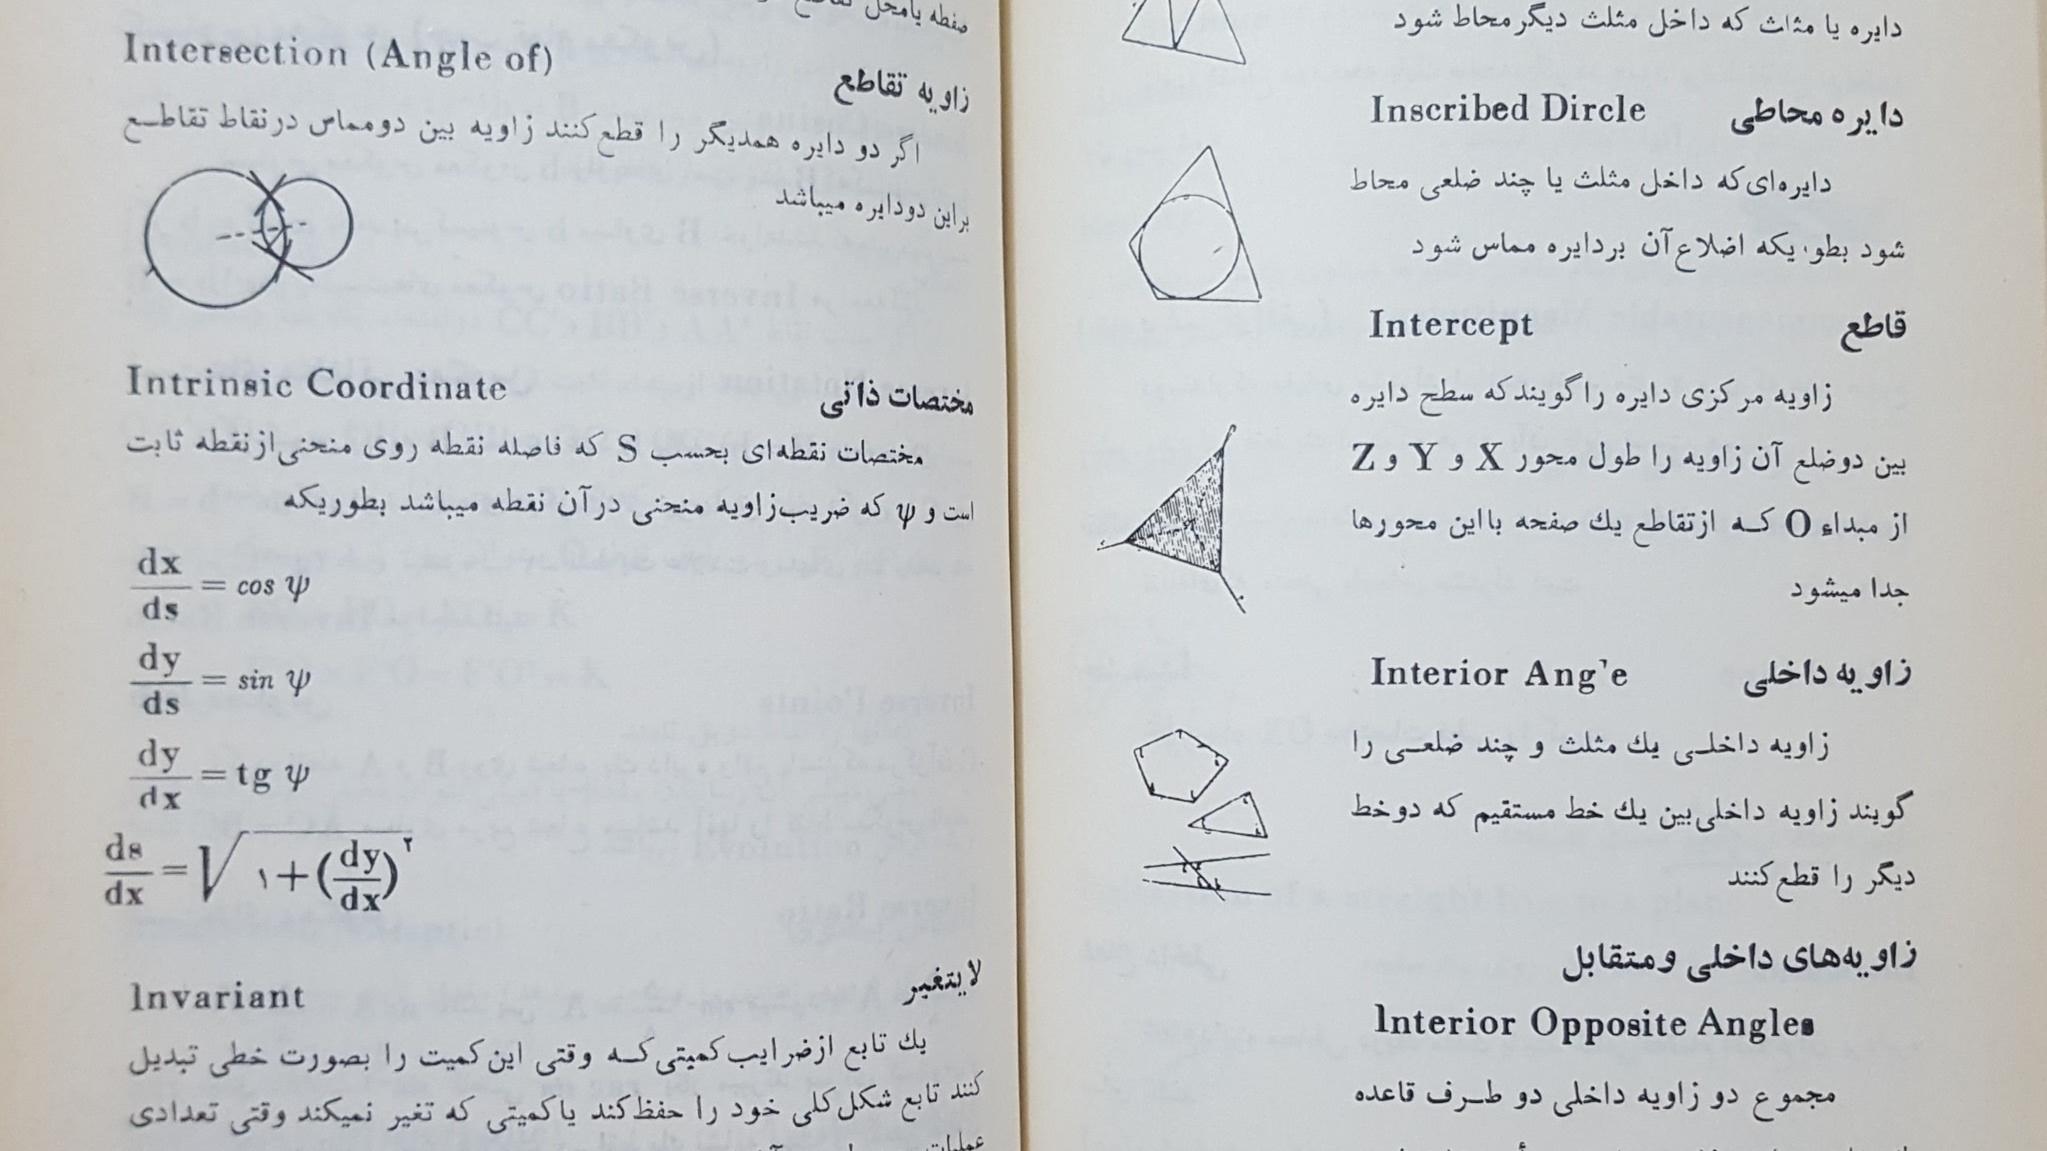 دایره یا مثلث که داخل مثلث دیگر محاط شود
دایره محاطی Inscribed Dircle
دایره‌ای که داخل مثلث یا چند ضلعی محاط
شود بطوریکه اضلاع آن بردایره مماس شود
قاطع Intercept
زاویه مرکزی دایره را گویند که سطح دایره
بین دو ضلع آن زاویه را طول محور X و Y و Z
از مبداء O که از تقاطع یك صفحه با این محورها
جدا میشود
زاویه داخلی Interior Ang'e
زاویه داخلی یك مثلث و چند ضلعی را
گویند زاویه داخلی بین یك خط مستقیم که دو خط
دیگر را قطع کنند
زاویه‌های داخلی و متقابل
Interior Opposite Angles
مجموع دو زاویه داخلی دو طرف قاعده
Intersection (Angle of) زاویه تقاطع
اگر دو دایره همدیگر را قطع کنند زاویه بین دو مماس در نقاط تقاطع
براین دودایره میباشد
Intrinsic Coordinate مختصات ذاتی
مختصات نقطه‌ای بحسب S که فاصله نقطه روی منحنی از نقطه ثابت
است و ψ که ضریب زاویه منحنی در آن نقطه میباشد بطوریکه
dx/ds = cos ψ
dy/ds = sin ψ
dy/dx = tg ψ
ds/dx = √۱+(dy/dx)۲
Invariant لایتغیر
یك تابع از ضرایب کمیتی که وقتی این کمیت را بصورت خطی تبدیل
کنند تابع شکل کلی خود را حفظ کند یا کمیتی که تغیر نمیکند وقتی تعدادی
عملیات